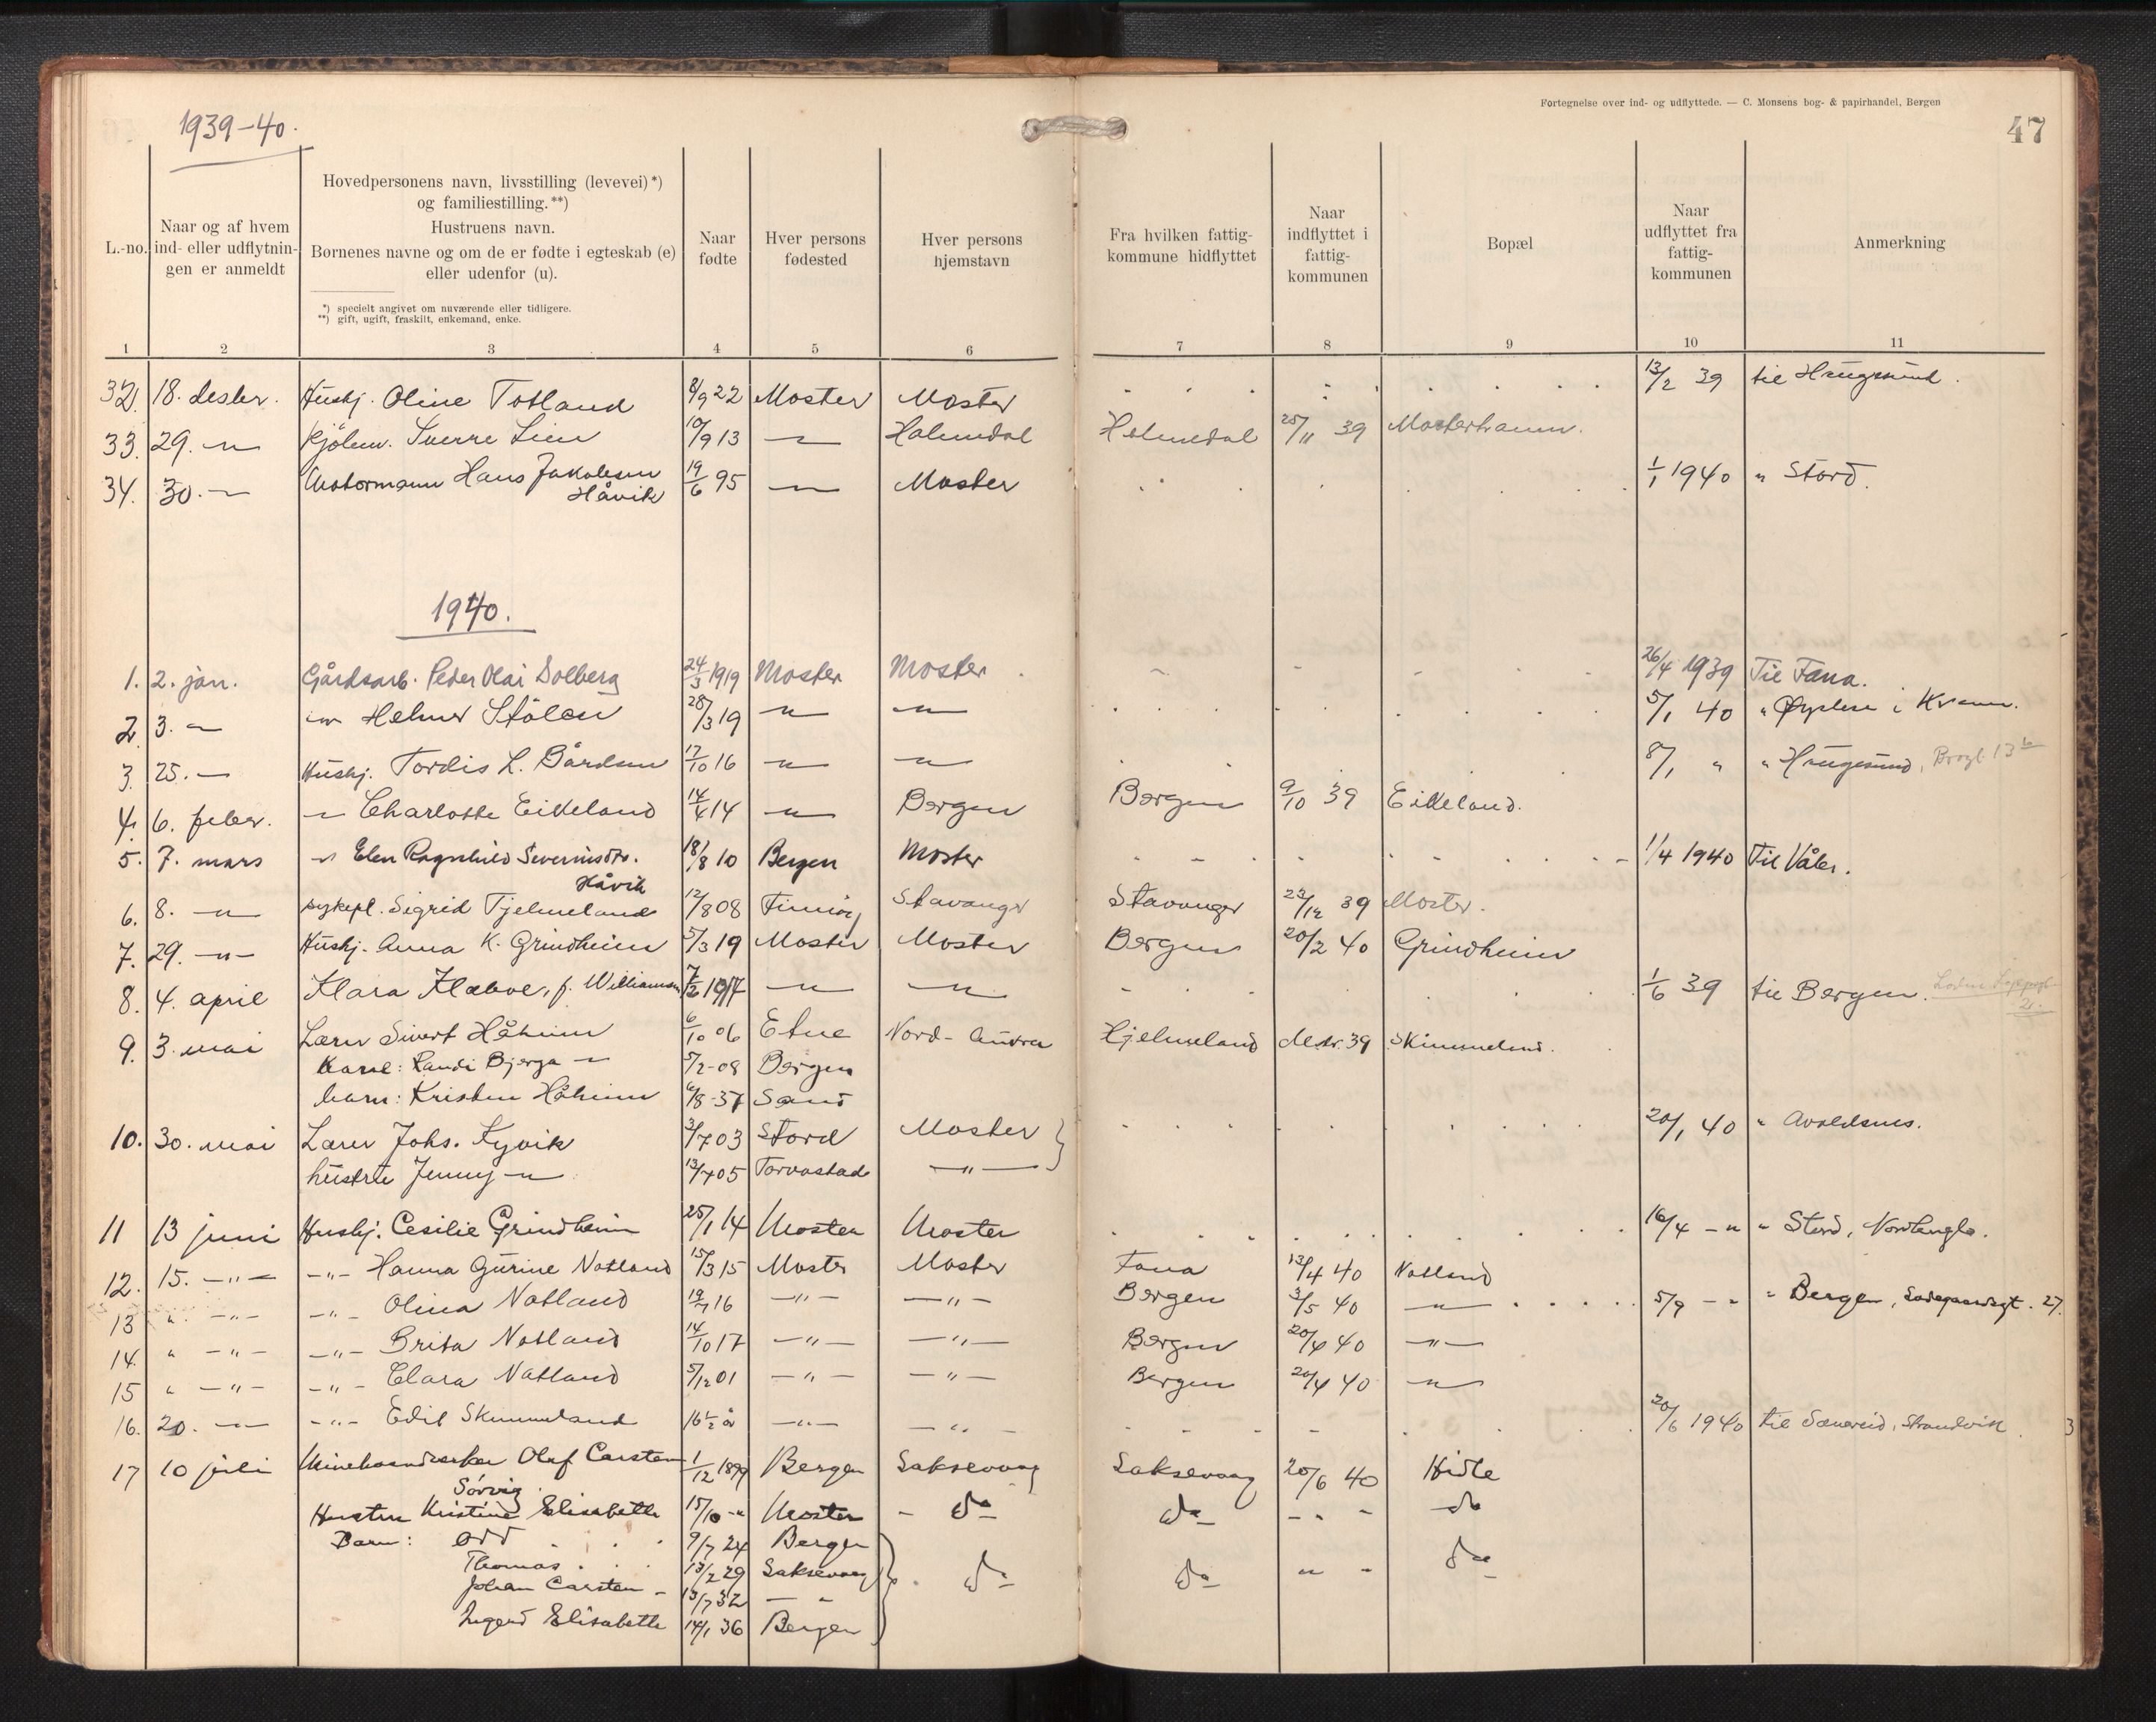 1939-40.
Fortegnelse over ind- og udflyttede. — C. Monsens bog- & papirhandel, Bergen
47
L.-no.
Naar og af hvem ind- eller udflytnin- gen er anmeldt
Hovedpersonens navn, livsstilling (levevei)*)
og familiestilling.**)
Hustruens navn.
Børnenes navne og om de er fødte i egteskab (e)
eller udenfor (u).
*) specielt angivet om nuværende eller tidligere.
**) gift, ugift, fraskilt, enkemand, enke.
Naar fødte
Hver persons fødested
Hver persons hjemstavn
Fra hvilken fattig- kommune hidflyttet
Naar indflyttet i fattig- kommunen
Bopæl
Naar udflyttet fra fattig- kommunen
Anmerkning
1 2 3 4 5 6 7 8 9 10 11
32. 18. desbr. Hushj. Oline Totland 8/9 22 Moster Moster 13/2 39 til Haugesund.
33. 29. — Sverre Lien 10/9 13 — Halmdal Holmedal 25/11 39 Mosterhamn.
34. 30. — Motormann Hans Jakobsen 19/6 95 — Moster 1/1 1940 " Stord.
Håvik
1940.
1. 2. jan. Gårdsarb. Peder Olai Solberg 24/3 1919 Moster Moster 26/4 1939 Til Fana.
2. 3. — " Helmer Stölen 28/3 19 — " — — " — 5/1 40 " Øystese i Kvam.
3. 25. — Hushj. Tordis L. Bårdsen 17/10 16 — " — — " — 8/1 " " Haugesund,
4. 6. febr. — Charlotte Eikeland 14/4 14 — " — Bergen Bergen 9/10 39 Eikeland.
5. 7. mars " Elen Ragnhild Severinsdtr. 18/8 10 Bergen Moster 1/4 1940 Til Våler.
Håvik
6. 8. — " — sykepl. Sigrid Tjelmeland 12/8 08 Finnöy Stavanger Stavanger 22/12 39 Moster.
7. 29. — " — Hushj. Anna K. Grindheim 5/3 19 Moster Moster Bergen 20/2 40 Grindheim
8. 4. april Klara Klæboe, f. Williamsen 7/2 1917 — " — — " — 1/6 39 til Bergen.
9. 3. mai Lærer Sivert Håheim 6/10 06 Etne Nord-Aurdal Hjelmeland desbr. 39 Skimmeland.
Kone: Randi Bjerga — " 5/2-08 Bergen
barn: Kristen Håheim 6/8-37 Sand
10. 30. mai Lærer Johs. Kyvik 3/7 03 Stord Moster 20/1 40 " Avaldsnes.
hustru Jenny — " 13/7 05 Torvastad — " —
11 13 juni Hushj. Cesilie Grindheim 25/1 14 Moster Moster 16/4 — " " Stord, Nordhuglo.
12. 15. — " — — " — Hanna Gurine Natland 15/3 15 Moster Moster Fana 13/4 40 Natland
13 " — " — — " — Olina Natland 19/7 16 — " — — " — Bergen 3/5 40 — " — 5/9 — " " Bergen, Ladegaardsgt. 27.
14. " — " — — " — Brita Natland 14/10 17 — " — — " — Bergen 20/4 40 — " —
15 " — " — — " — Clara Natland 5/12 01 — " — — " — Bergen 20/4 40 — " —
16. 20. — " — — " — Edit Skimmeland 16 1/2 år — " — — " — 20/6 1940 til Sævareid, Strandvik 3
17 10 juli Minehaandverker Oluf Carsten 1/12 1899 Bergen Laksevaag Laksevaag 20/6 40 Hidle
Sörvig
Hustru Kristine Elisabeth 15/10 — " Moster — do do — " — do
Barn: Odd 9/7 24 Bergen
Thomas 13/2 29 Laksevaag do do " — do
Johan Carsten — 13/7 32 — " —
Ingerd Elisabeth 14/1 36 Bergen